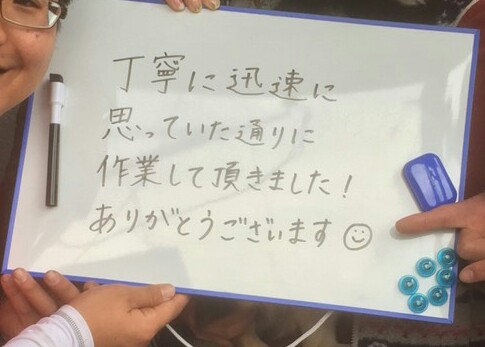 丁寧に迅速に
思っていた通りに
作業して頂きました!
ありがとうございます☺